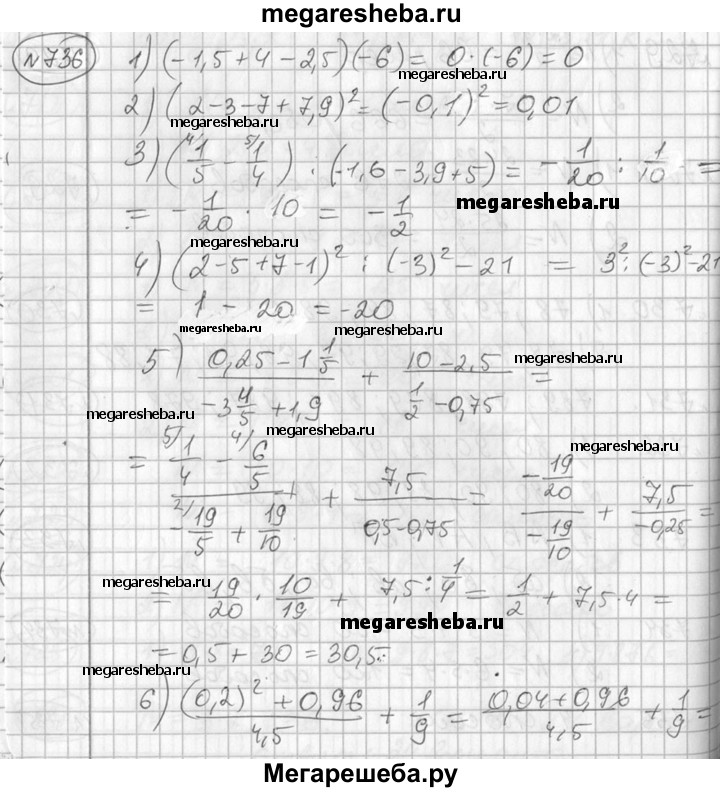 megaresheba.ru
№736 1) (-1,5+4-2,5)(-6)= 0·(-6)=0
megaresheba.ru
2) (2-3-7+7,9)²=(-0,1)²=0,01
megaresheba.ru
3) (⁴⁄1/5 - ⁵⁄1/4) · (-1,6-3,9+5)= -1/20 : 1/10 =
megaresheba.ru
= -1/20 · 10 = -1/2
megaresheba.ru
4) (2-5+7-1)² : (-3)²-21 = 3²:(-3)²-21
= 1 - 20 = -20
megaresheba.ru megaresheba.ru
5) (0,25-1 1/5)/(-3 4/5+1,9) + (10-2,5)/(1/2-0,75) =
megaresheba.ru
megaresheba.ru
megaresheba.ru
megaresheba.ru
= (⁵⁄1/4 - ⁴⁄6/5)/(-²⁄19/5 + 19/10) + 7,5/(0,5-0,75) = (-19/20)/(-19/10) + 7,5/(-0,25) =
megaresheba.ru
= 19/20 · 10/19 + 7,5:1/4 = 1/2 + 7,5·4 =
megaresheba.ru
= 0,5+30=30,5
megaresheba.ru
6) ((0,2)²+0,96)/4,5 + 1/9 = (0,04+0,96)/4,5 + 1/9 =
Мегарешеба.ру